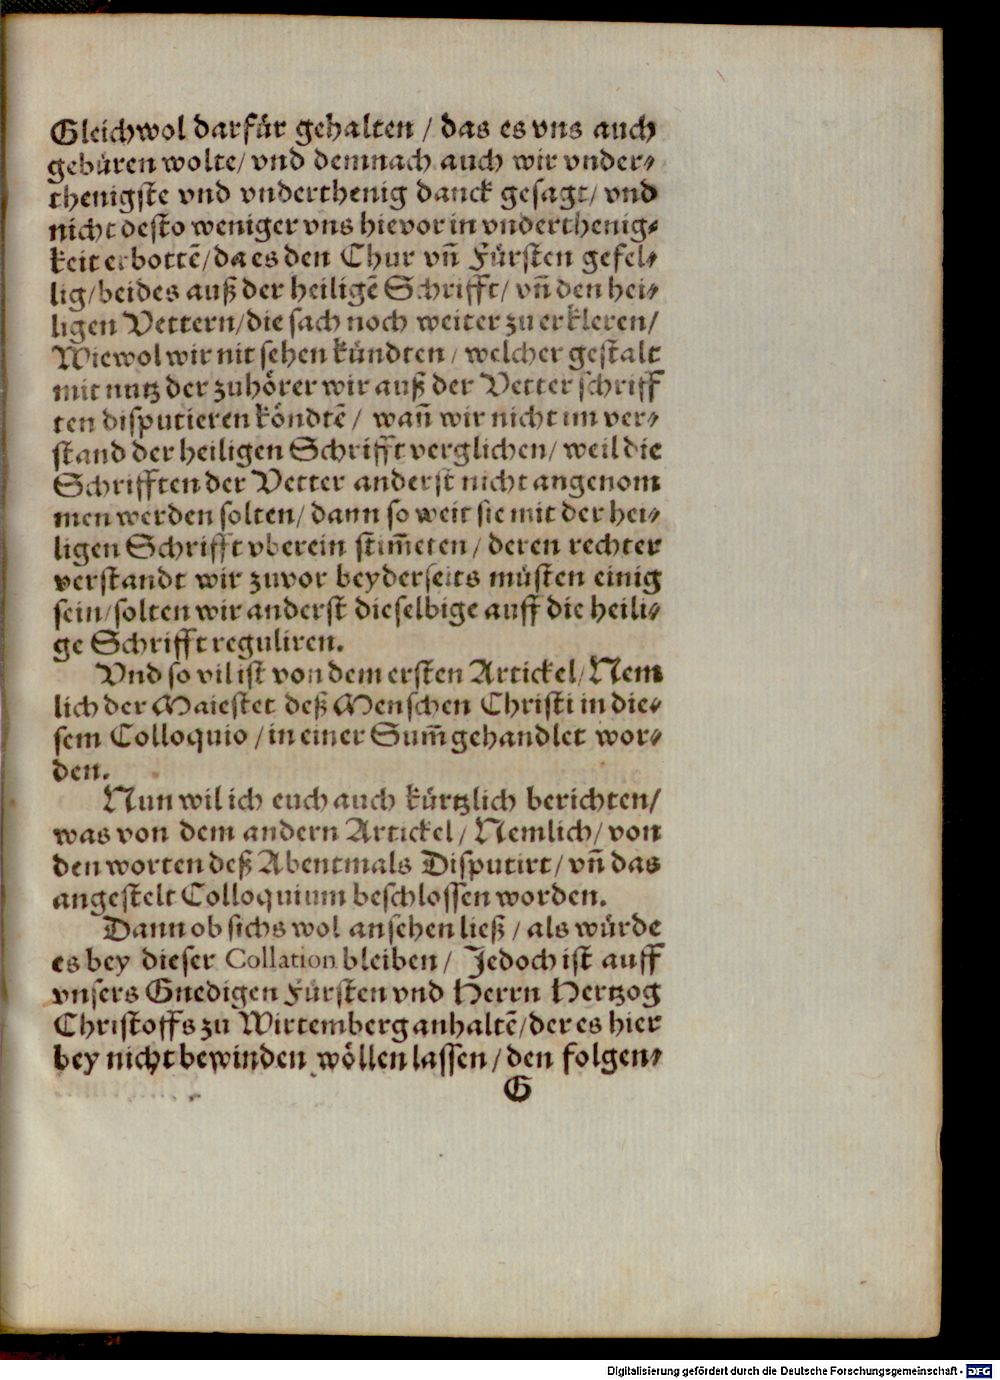 Gleichwol darfür gehalten / das es vns auch
gebüren wolte/ vnd demnach auch wir vnder-
thenigste vnd vnderthenig danck gesagt/ vnd
nicht desto weniger vns hievor in vnderthenig-
keit erbottē/ da es den Chur vn̄ Fürsten gefel-
lig/ beides auß der heiligē Schrifft/ vn̄ den hei-
ligen Vettern/ die sach noch weiter zu erkleren/
Wiewol wir nit sehen kündten / welcher gestalt
mit nutz der zuhörer wir auß der Vetter schriff
ten disputieren köndtē / wan̄ wir nicht im ver-
stand der heiligen Schrifft verglichen/ weil die
Schrifften der Vetter anderst nicht angenom
men werden solten/ dann so weit sie mit der hei-
ligen Schrifft vberein stim̄eten / deren rechter
verstandt wir zuvor beyderseits müsten einig
sein/ solten wir anderst dieselbige auff die heili-
ge Schrifft reguliren.
Vnd so vil ist von dem ersten Artickel/ Nem
lich der Maiestet deß Menschen Christi in die-
sem Colloquio / in einer Sum̄ gehandlet wor-
den.
Nun wil ich euch auch kürtzlich berichten/
was von dem andern Artickel / Nemlich/ von
den worten deß Abentmals Disputirt/ vn̄ das
angestelt Colloquium beschlossen worden.
Dann ob sichs wol ansehen ließ / als würde
es bey dieser Collation bleiben/ Jedoch ist auff
vnsers Gnedigen Fürsten vnd Herrn Hertzog
Christoffs zu Wirtemberg anhaltē/ der es hier
bey nicht bewinden wöllen lassen / den folgen-
G
Digitalisierung gefördert durch die Deutsche Forschungsgemeinschaft - DFG